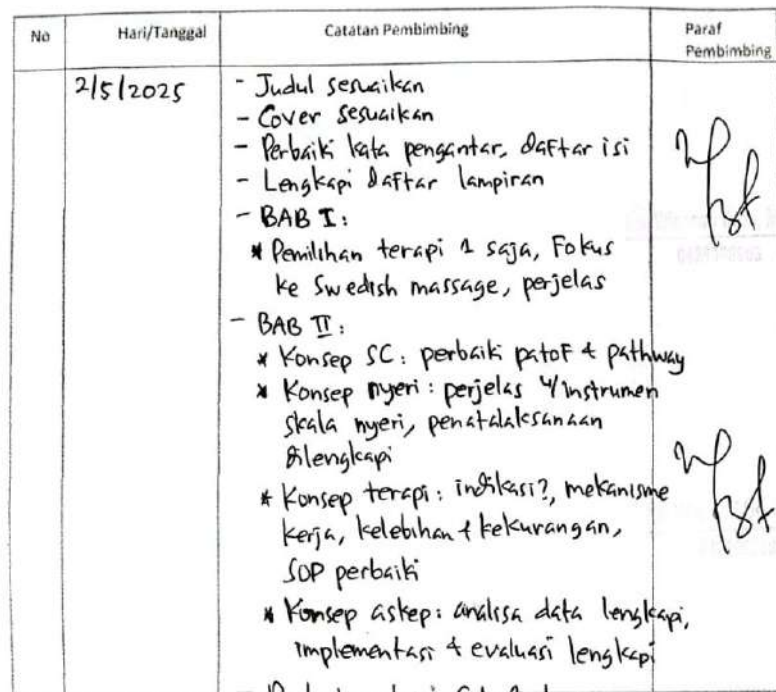 No Hari/Tanggal Catatan Pembimbing Paraf Pembimbing
2/5/2025 - Judul sesuaikan
- Cover sesuaikan
- Perbaiki kata pengantar, daftar isi
- Lengkapi daftar lampiran
- BAB I:
* Pemilihan terapi 1 saja, Fokus
ke Swedish massage, perjelas
- BAB II:
* Konsep SC: perbaiki patof & pathway
* Konsep nyeri: perjelas u/ instrumen
skala nyeri, penatalaksanaan
dilengkapi
* Konsep terapi: indikasi?, mekanisme
kerja, kelebihan & kekurangan,
SOP perbaiki
* Konsep askep: analisa data lengkapi,
implementasi & evaluasi lengkapi